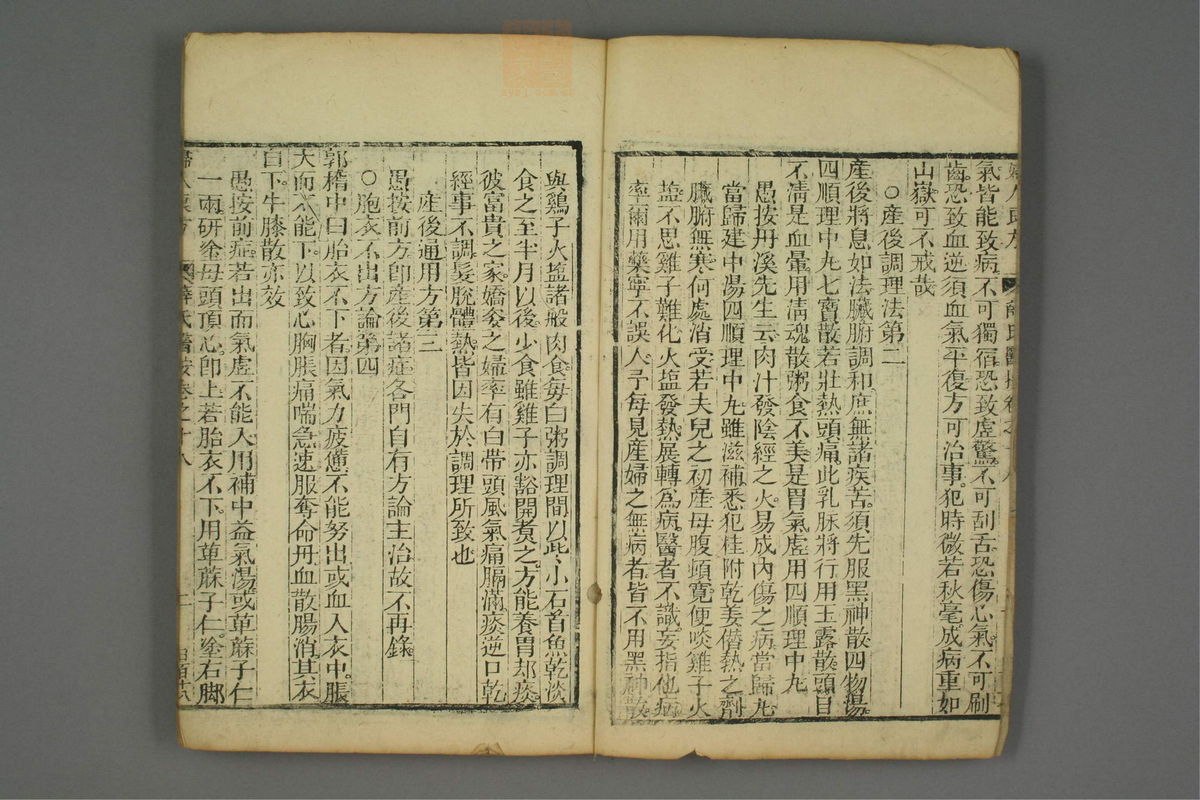 婦人良方 薛氏醫按卷之十八
氣皆能致病不可獨宿恐致虛驚不可刮舌恐傷心氣不可刷
齒恐致血逆須血氣平復方可治事犯時微若秋毫成病重如
山嶽可不戒哉
○産後調理法第二
産後將息如法臟腑調和庶無諸疾苦須先服黑神散四物湯
四順理中丸七寶散若壯熱頭痛此乳脉將行用玉露散頭目
不淸是血暈用淸魂散粥食不美是胃氣虛用四順理中丸
愚按丹溪先生云肉汁發陰經之火易成內傷之病當歸丸
當歸建中湯四順理中丸雖滋補悉犯桂附乾姜僭熱之劑
臟腑無寒何處消受若夫兒之初産母腹頓寬便啖雞子火
塩不思雞子難化火塩發熱展轉爲病醫者不識妄指他病
率爾用藥寧不誤人予每見産婦之無病者皆不用黑神散
與鷄子火塩諸般肉食每白粥調理間以此小石首魚乾淡
食之至半月以後少食雖雞子亦豁開煑之方能養胃却痰
彼富貴之家嬌豢之婦率有白帶頭風氣痛膈滿痰逆口乾
經事不調髮脫體熱皆因失於調理所致也
産後通用方第三
愚按前方卽産後諸症各門自有方論主治故不再錄
○胞衣不出方論第四
郭稽中曰胎衣不下者因氣力疲憊不能努出或血入衣中脹
大而不能下以致心胸脹痛喘急速服奪命丹血散脹消其衣
自下牛膝散亦效
愚按前症若出而氣虛不能入用補中益氣湯或萆蔴子仁
一兩研塗母頭頂心卽上若胎衣不下用萆蔴子仁塗右脚
婦人良方 薛氏醫按卷之十八